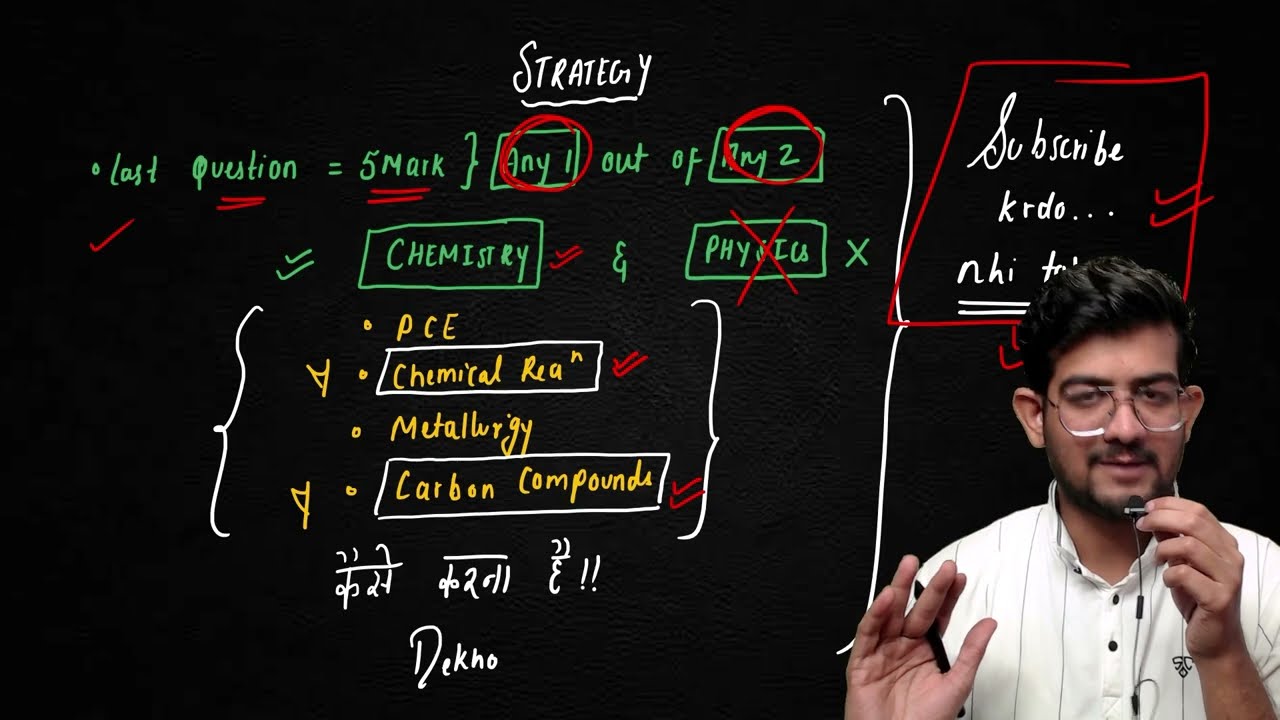 STRATEGY
• Last Question = 5 Mark } Any 1 out of Any 2
CHEMISTRY & PHYSICS X
• PCE
∀ • Chemical Reaⁿ
• Metallurgy
∀ • Carbon Compounds
कैसे करना है !!
Dekho
Subscribe
krdo...
nhi